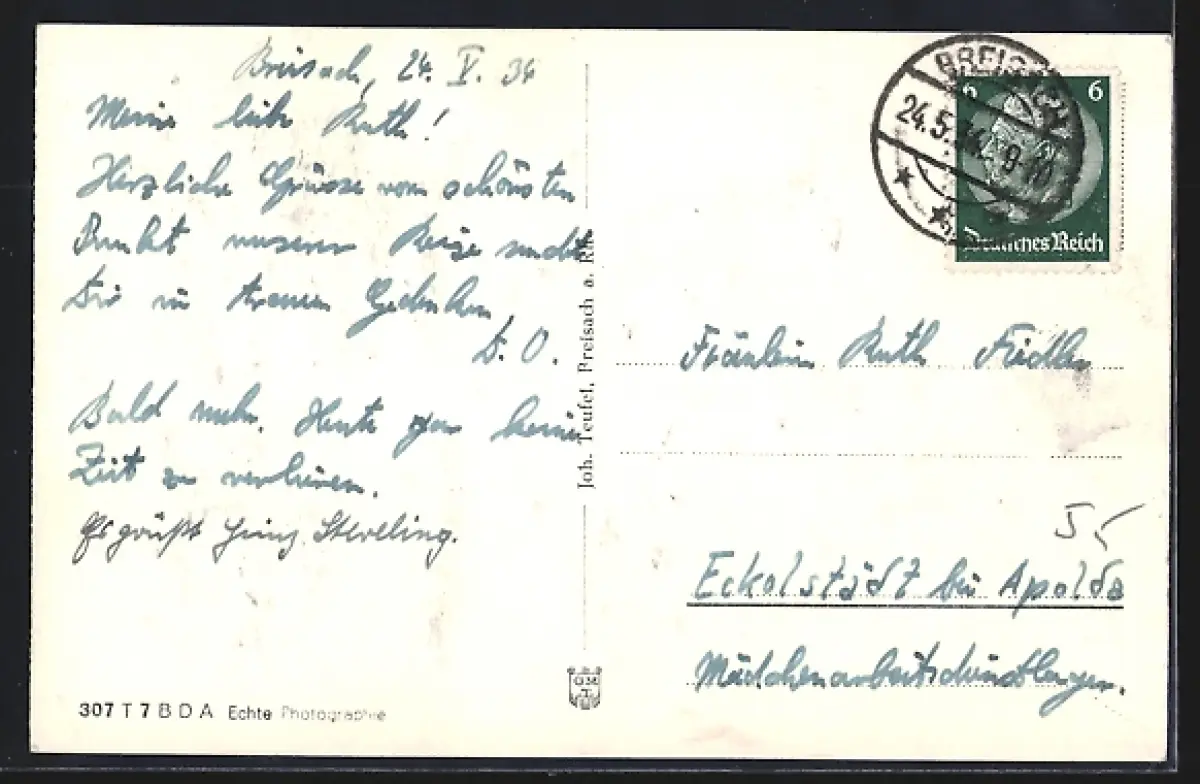 Breisach, 24. V. 34
Meine liebe Ruth!
Herzliche Grüsse vom schönsten
Punkt unserer Reise sendet
Dir in treuem Gedenken
D. O.
Bald mehr. Heute gar keine
Zeit zu verlieren.
Es grüßt Heinz Sterling.
307 T 7 B D A Echte Photographie
Joh. Teufel, Breisach a. Rh.
BREISACH
24.5.34. 9-10
6 6
Deutsches Reich
Fräulein Ruth Fiedler
Eckolstädt bei Apolda
Mädchenarbeitsdienstlager.